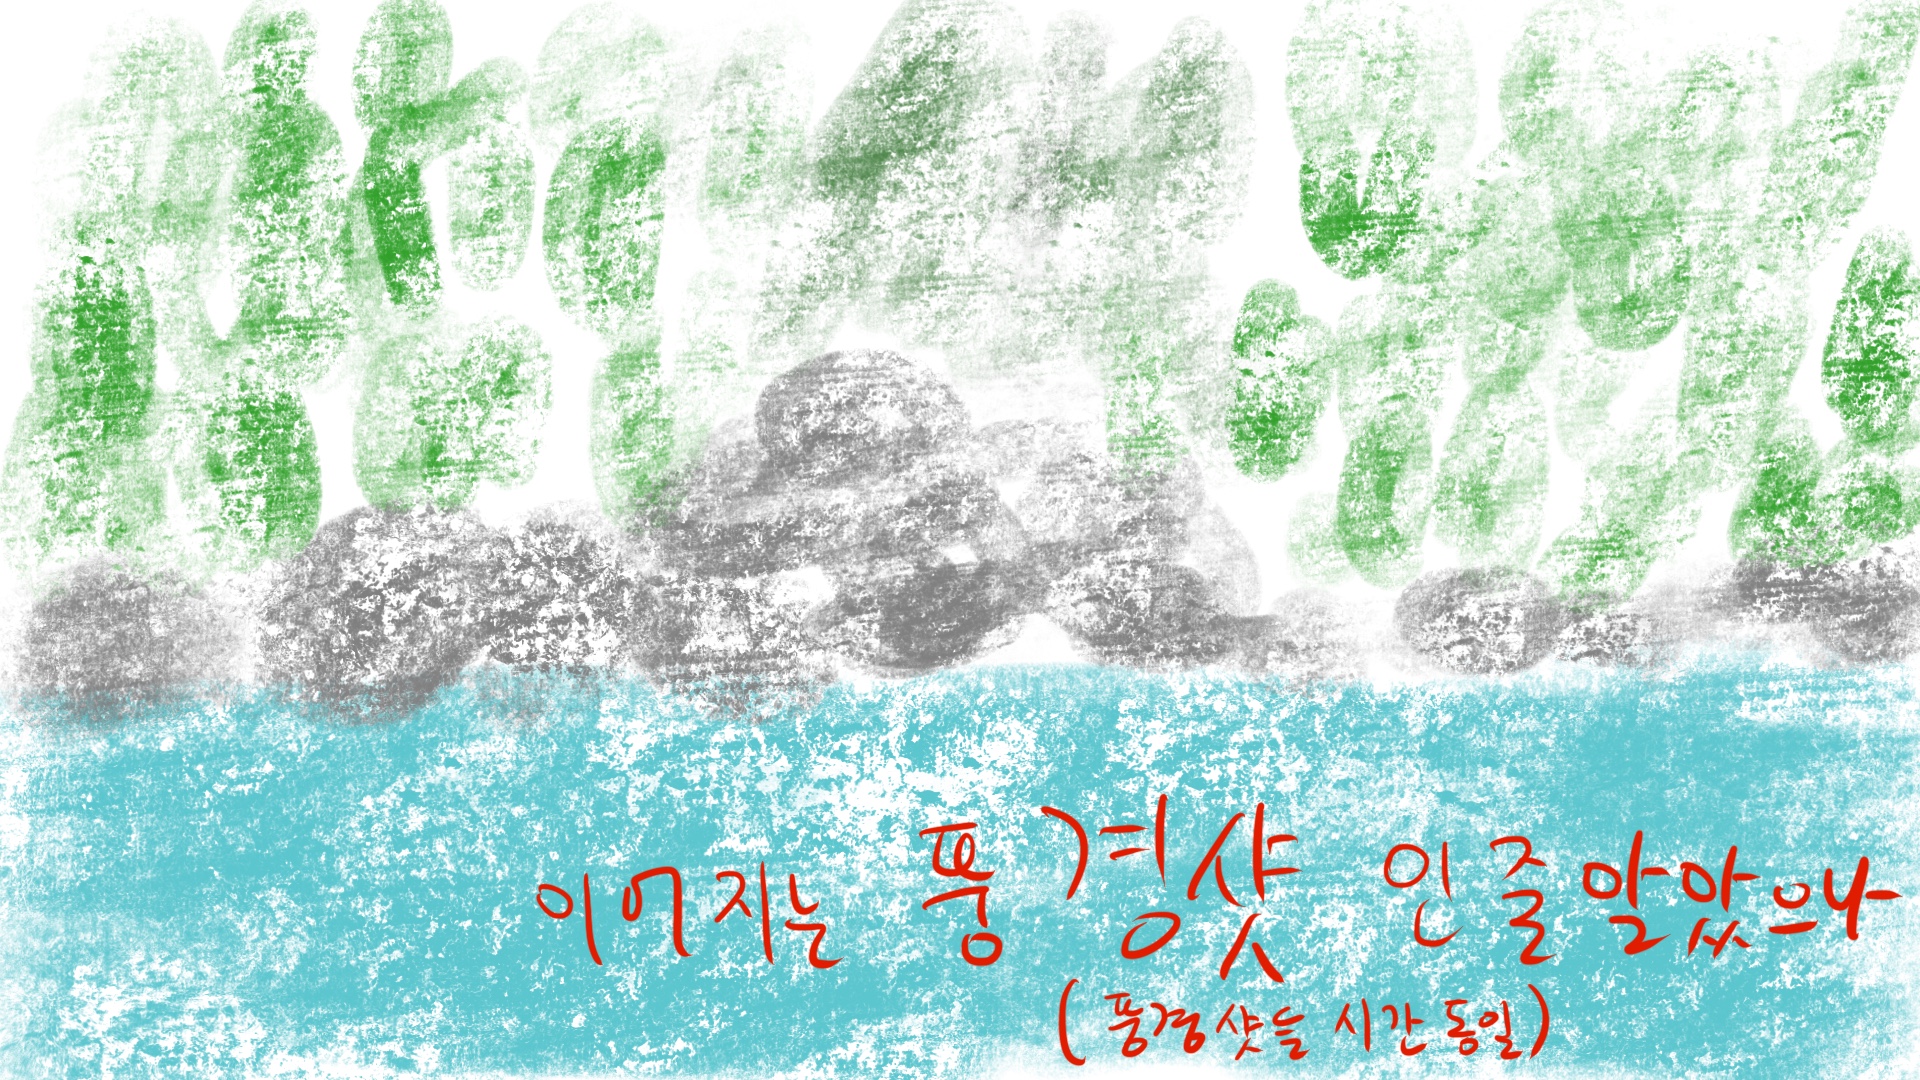 이어지는 풍경샷 인줄 알았으나
(풍경샷들 시간 동일)